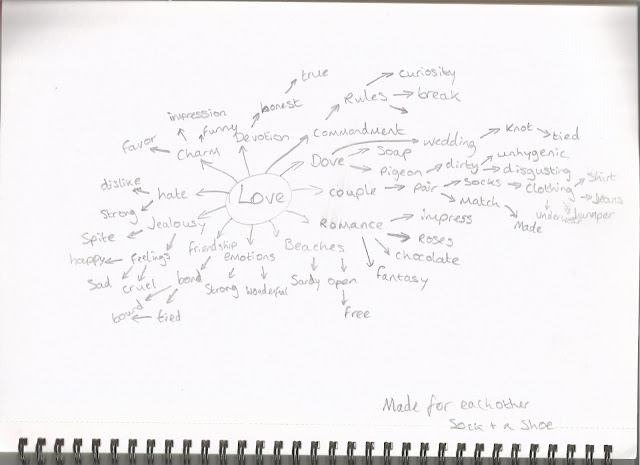 true
curiosity
honest
Rules
break
impression
funny
Devotion
Commandment
Knot
tied
favor
Charm
Dove
Soap
wedding
unhygenic
Pigeon
dirty
disgusting
dislike
hate
Love
couple
pair
socks
clothing
Shirt
Jeans
Strong
Jealousy
Match
underwear
Jumper
Spite
Romance
impress
Made
happy
feelings
friendship
emotions
Beaches
Roses
chocolate
Sad
cruel
bond
Strong
Wonderful
Sandy
open
fantasy
bound
tied
free
Made for eachother
Sock + a Shoe